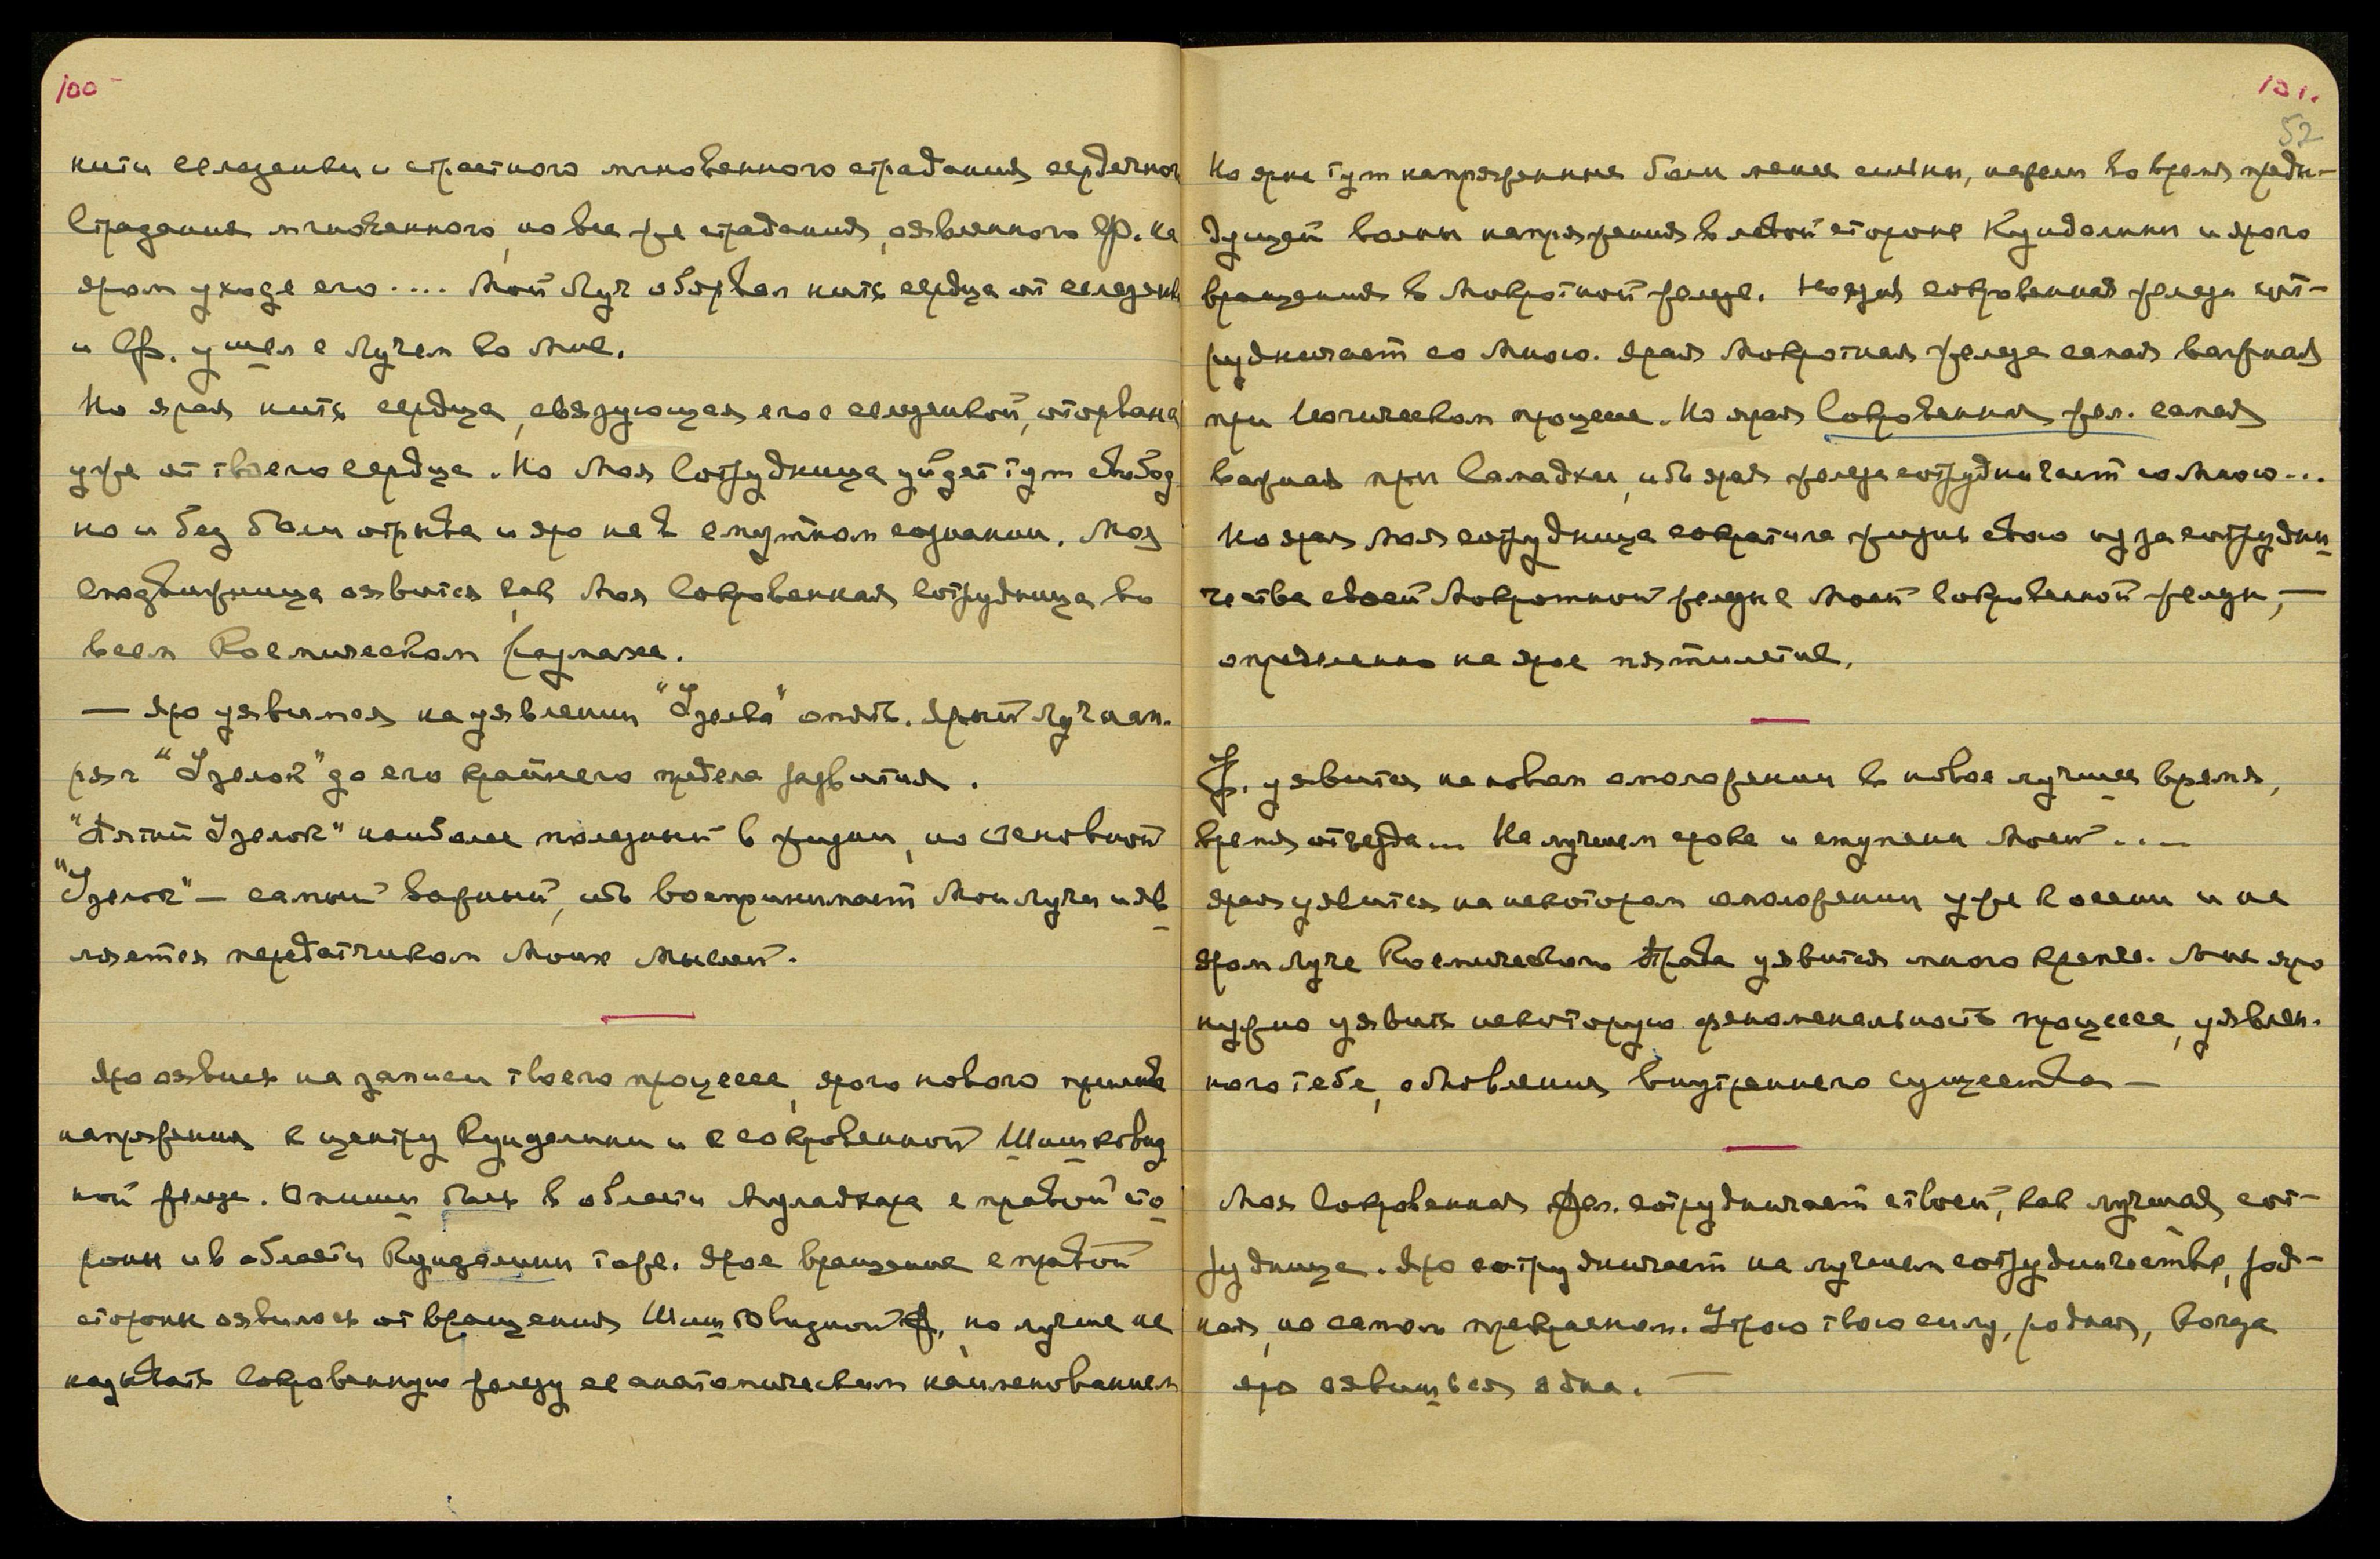 100
нити селезенки и страстного мгновенного страдания сердечног
страдания мгновенного, но все же страдания, оявленного на
яром уходе его.... Мой Луч оборвал нить сердца от селезенк
и ушел с Лучем ко Мне.
Но ярая нить сердца, связующая его с селезенкой, оторвана
уже от твоего сердца. Но Моя Сотрудница уйдет тут свобод
но и без боли отрыва и яро не в смутном сознании. Моя
сподвижница оявится как Моя Сокровенная Сотрудница во
всем Космическом размахе.
— Яро уявимся на уявлении "Узелка" опять. Ярый Луч нап.
ряг "Узелок" до его крайнего предела развития.
"Пятый Узелок" наиболее полезный в жизни, но основной
"Узелок" — самый важный, ибо воспринимает Мои Лучи и яв
ляется передатчиком Моих Мыслей.
Яро оявись на записи твоего процесса, ярого нового прилива
напряжения к центру Кундалини и к сокровенной Шишковид
ной железе. Опиши боль в области с правой сто
роны и в области Кундалини тоже. Ярое вращение с правой
стороны оявилось от вращения Шишковидной ж., но лучше не
называть Сокровенную железу ее анатомическим наименованием
101.
52
Но ярые тут напряженные боли менее сильны, нежели во время преды-
дущей волны напряжения в левой стороне Кундалини и ярого
вращения в Мокротной железе. Но ярая сокровенная железа сот-
рудничает со Мною. Ярая Мокротная железа самая важная
при Йогическом процессе. Но ярая Сокровенная жел. самая
важная при Самадхи, ибо ярая железа сотрудничает со Мною...
Но ярая Моя сотрудница сократила жизнь свою из за сотрудни
чества своей Мокротной железы с Моей Сокровенной железы, —
определенно на ярое пятилетие.
уявится на новом омоложении в новое лучшее время,
время отъезда... На лучшем сроке и ступени Моей....
Ярая уявится на некотором омоложении уже к осени и на
яром луче Космического Права уявится много крепче. Мне яро
нужно уявить некоторую феноменальность процесса, уявлен.
ного тебе, обновления внутреннего существа —
Моя Сокровенная жел. сотрудничает с твоей, как лучшая сот-
рудница. Яро сотрудничает на лучшем сотрудничестве, род-
ная, но самом прекрасном. Утрою твою силу, родная, когда
яро оявишься одна. —